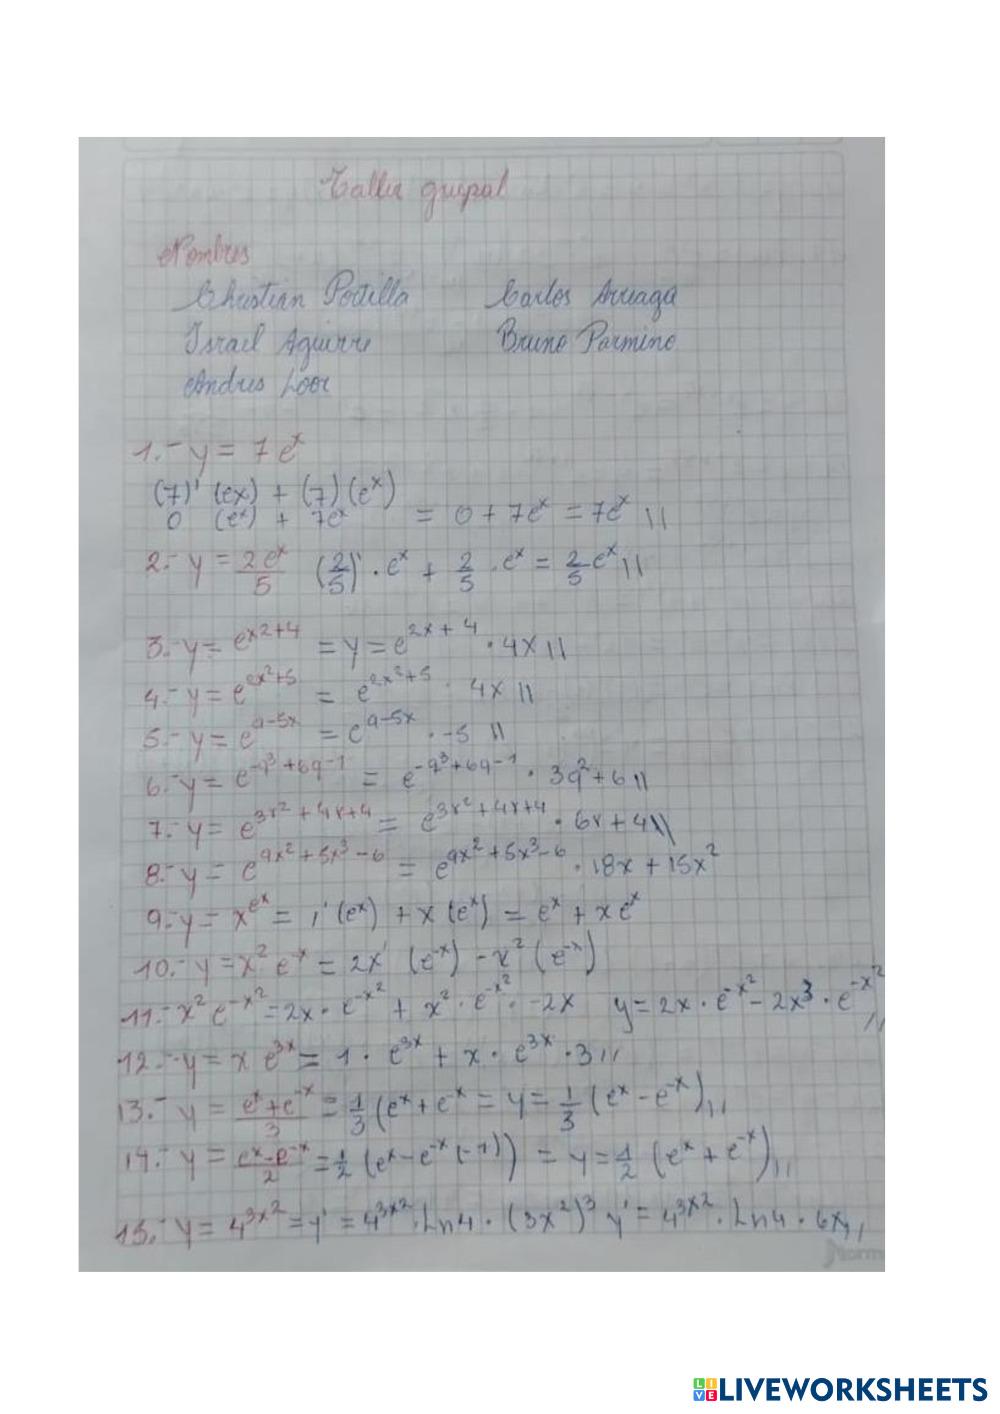 Taller grupal
Nombres
Christian Portilla Carlos Arreaga
Israel Aguirre Bruno Parmino
Andres Loor
1.- y = 7e^x
(7)' (ex) + (7) (e^x)
0 (e^x) + 7e^x = 0 + 7e^x = 7e^x //
2.- y = 2e^x/5 (2/5)' · e^x + 2/5 · e^x = 2/5 e^x //
3.- y = e^x2+4 = y = e^2x+4 · 4x //
4.- y = e^2x²+5 = e^2x²+5 · 4x //
5.- y = e^9-5x = e^9-5x · -5 //
6.- y = e^-q³+6q-1 = e^-q³+6q-1 · 3q²+6 //
7.- y = e^3x²+4x+4 = e^3x²+4x+4 · 6x+4 //
8.- y = e^9x²+5x³-6 = e^9x²+5x³-6 · 18x + 15x²
9.- y = xe^x = 1'(e^x) + x(e^x) = e^x + xe^x
10.- y = x² e^-x = 2x' (e^-x) - x² (e^-x)
11.- x² e^-x² = 2x · e^-x² + x² · e^-x² · -2x y = 2x · e^-x² - 2x³ · e^-x² //
12.- y = x e^3x = 1 · e^3x + x · e^3x · 3 //
13.- y = e^x+e^-x/3 = 1/3 (e^x + e^-x = y = 1/3 (e^x - e^-x) //
14.- y = e^x-e^-x/2 = 1/2 (e^x - e^-x (-1)) = y = 1/2 (e^x + e^-x) //
15.- y = 4^3x² = y' = 4^3x² · Ln4 · (3x²)³ y' = 4^3x² · Ln4 · 6x //
Norm
LIVEWORKSHEETS